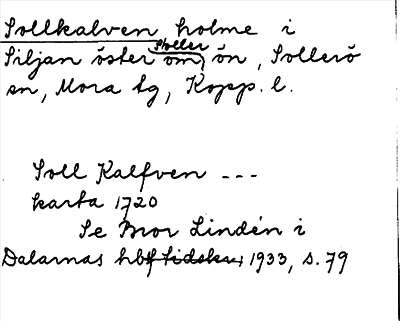 Sollkalven, holme i
Siljan öster om Soller ön, Sollerö
sn, Mora tg, Kopp. l.
Soll Kalfven ---
karta 1720
Se Bror Lindén i
Dalarnas hbf tidskr, 1933, s. 79